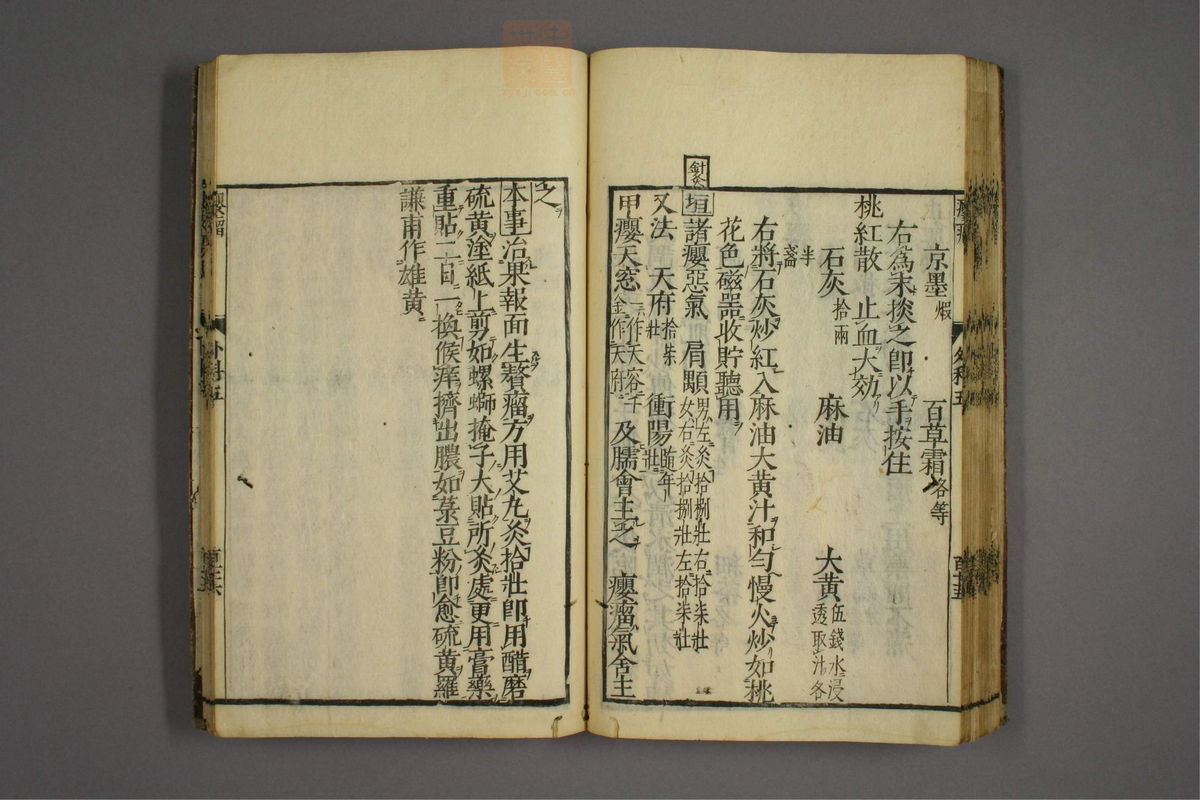 京墨煆 百草霜各等
右為末摻之即以手按住
桃紅散 止血大効
石灰拾兩 麻油半盞 大黃伍錢水浸透取汁各
右將石灰炒紅入麻油大黃汁和勻慢火炒如桃
花色磁器收貯聽用
針灸
垣諸癭惡氣 肩顒男左灸拾捌壯右拾柒壯女右灸拾捌壯左拾柒壯
又法 天府拾柒壯 衝陽隨年壯
甲癭天窓一作天容千金作天府及臑會主之 癭瘤氣舍主
之
本事治果報面生瘤方用艾丸灸拾壯即用醋磨
硫黃塗紙上剪如螺螄掩子大貼所灸處更用膏藥
重貼二日一換候痒擠出膿如菉豆粉即愈硫黃羅
謙甫作雄黃
外科五
外科五